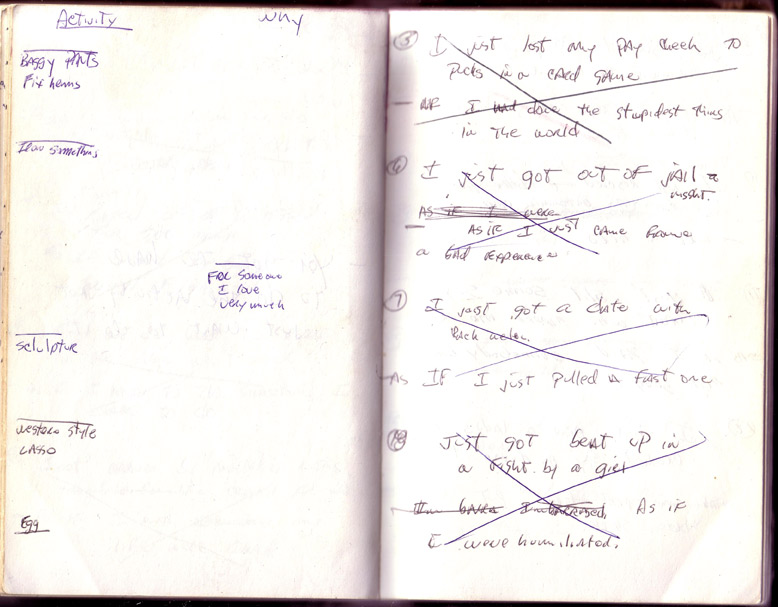 Activity
Why
BAGGY PANTS
Fix hems
Draw something
For someone
I love
very much
Sculpture
western style
LASSO
Egg
⑤ I just lost my pay check to
in a card game
I had done the stupidest thing
in the world
⑥ I just got out of jail
As if I were
— AS IF I just came
a bad experience
⑦ I just got a date with
As IF I just pulled a fast one
⑧ Just got beat up in
a fight by a girl
As if
I were humiliated.